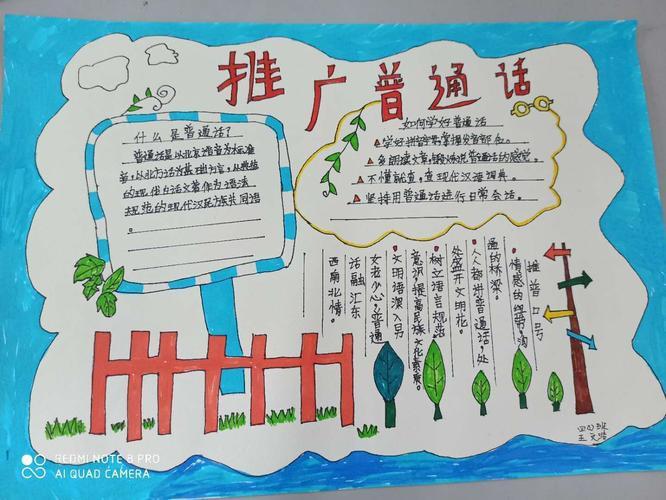 推广普通话
什么是普通话?
普通话是以北京语音为标准
音,以北方话为基础方言,以典范
的现代白话文著作为语法
规范的现代汉民族共同语
。
如何学好普通话
▲学好拼音,掌握发音部位。
▲多朗读文章,锻炼说普通话的感觉。
▲不懂就查,查现代汉语词典。
▲坚持用普通话进行日常会话。
推普口号
情感的纽带,沟
通的桥梁。
人人都讲普通话,处
处盛开文明花。
树立语言规范
意识,提高民族文化素质。
文明语深入男
女老少心,普通
话融汇东
西南北情。
REDMI NOTE 8 PRO
AI QUAD CAMERA